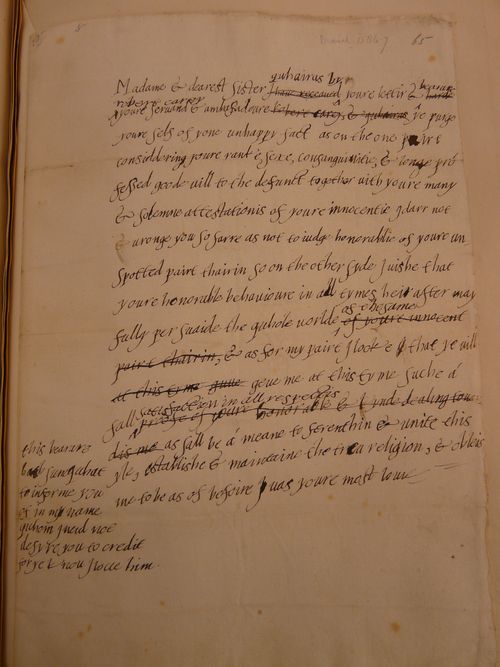 65
Madame & dearest sister quhairas by
youre lettir & bearare
robert carey
youre seruand & ambassadoure ye purge
youre self of yone unhappy fact as on the one pairt
considdering youre ranke sexe, consanguinitie, & longe pro
fessed goode will to the defunct together with youre many
& solemne attestationis of youre innocentie I darr not
wronge you so farre as not to iudge honorablie of youre un
spotted pairt thairin so on the other syde I uishe that
youre honorable behauioure in all tymes heirafter may
fully persuaide the quhole worlde of the same
of youre innocent
pairt thairin, & as for my pairt I looke that ye will
at this tyme geue me at this tyme suche a
full satisfaction in all respectis
honorable & kynde dealing towar
dis me as sall be a meane to strenthin & unite this
yle, establishe & maintaine the treu religion, & obleig
me to be as of befoire I uas youre most loue
this bearare
hath sumquhat
to informe you
of in my name
quhom I neid not
desyre you to credit
for ye knou I loue him